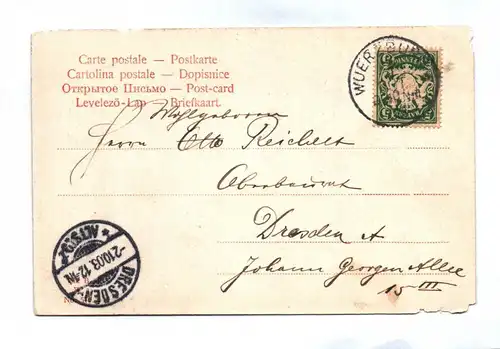 Carte postale — Postkarte
Cartolina postale — Dopisnice
Открытое Письмо — Post-card
Levelező-Lap — Briefkaart.
WUERZBURG
BAYERN
Wohlgeboren
Herrn Otto Reichelt
Oberbaurat
Dresden A
Johann Georgen Allee
15 III
DRESDEN-ALTST.
2.10.03. 12-1N